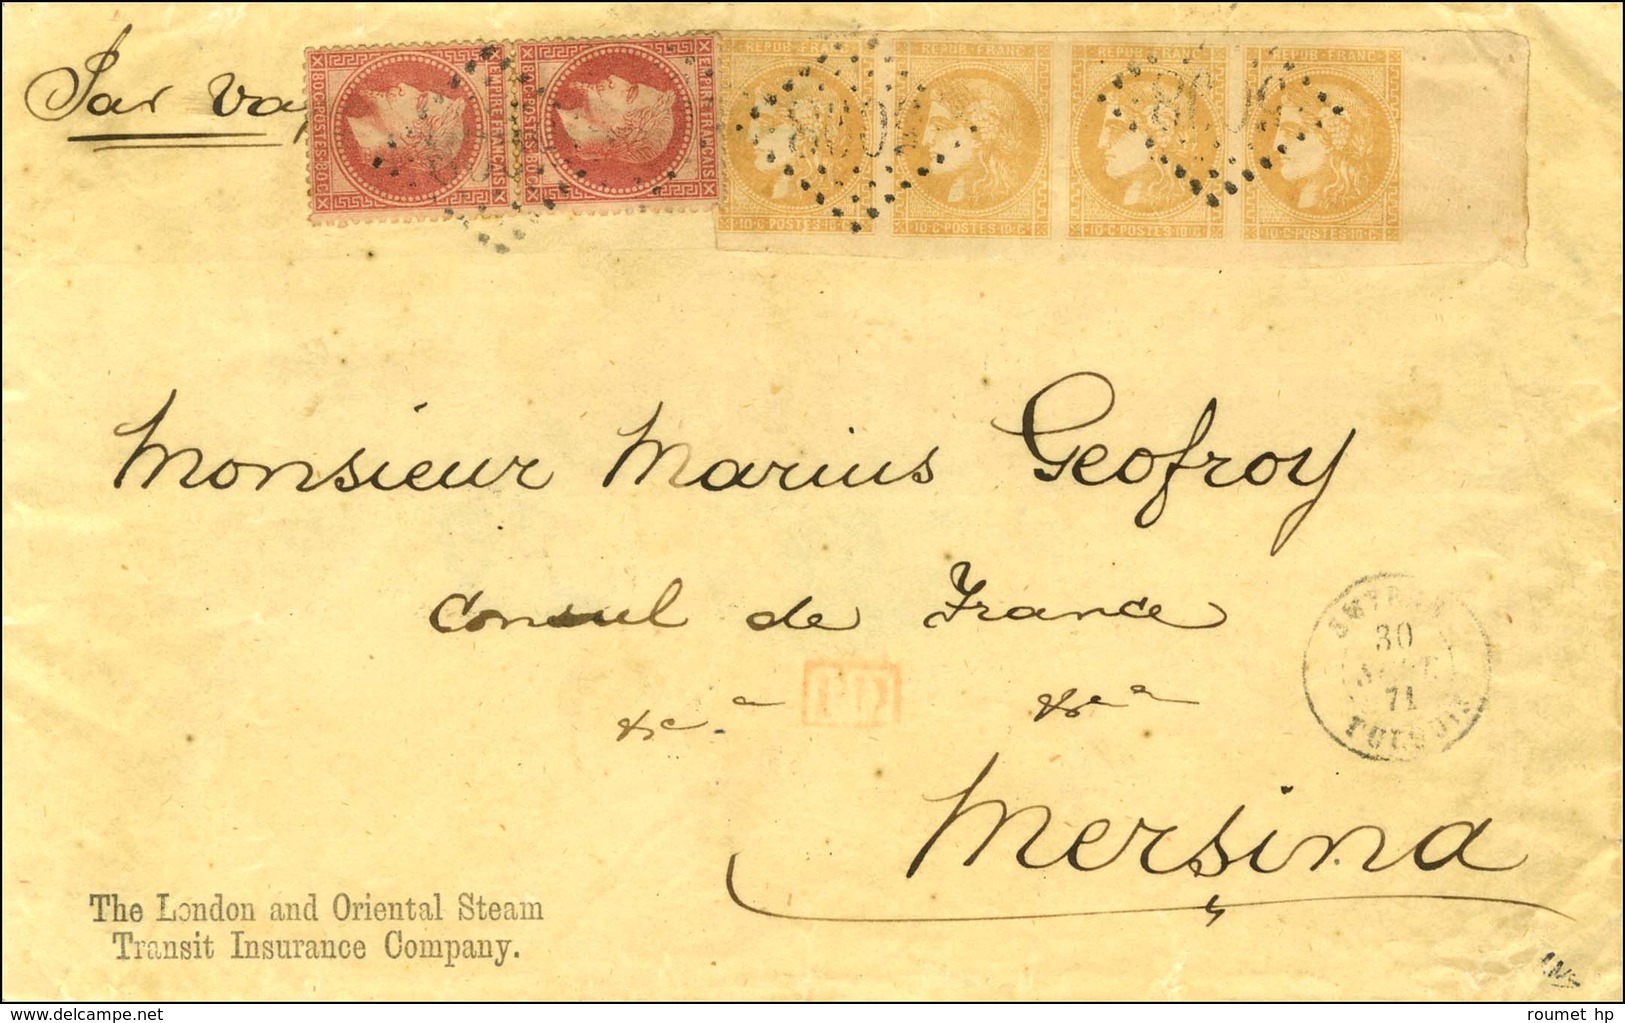 Par vap
EMPIRE FRANÇAIS
80C·POSTES·80C
EMPIRE FRANÇAIS
80C·POSTES·80C
REPUB·FRANC·
10·C·POSTES·10·C
REPUB·FRANC·
10·C·POSTES·10·C
REPUB·FRANC·
10·C·POSTES·10·C
REPUB·FRANC·
10·C·POSTES·10·C
Monsieur Marius Geofroy
Consul de France
PD
30
71
Mersina
The London and Oriental Steam
Transit Insurance Company.
roumet hp